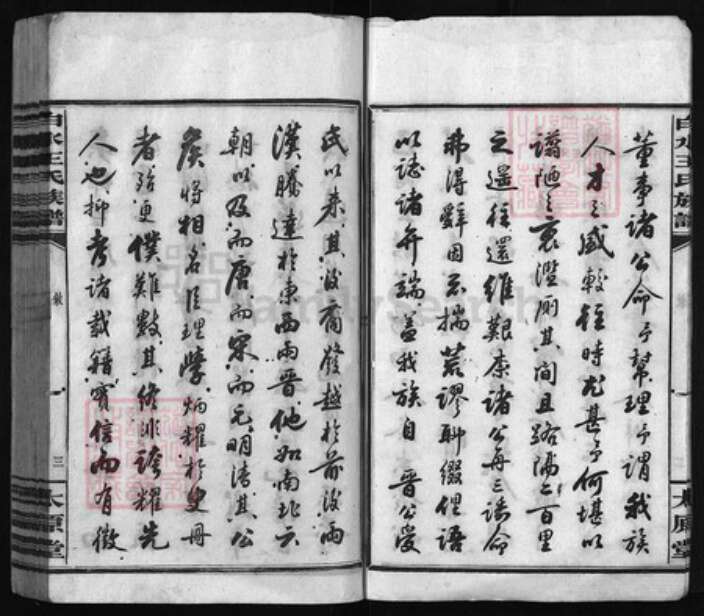 董事諸公命予幫理予謂我族
人才之盛較往時尤甚予何堪以
譾陋之衷濫厠其間且路隔二百里
之遥往還維艱奈諸公再三諈命
弗得辭因不揣荒謬聊綴俚語
以誌諸弁端蓋我族自晋公受
氏以来其後裔發越於前後兩
漢騰達於東西兩晋他如南北六
朝以及而唐而宋而元明清其公
侯将相名臣理學炳耀於史册
者殆更僕難數其修非誇耀先
人也抑考諸載籍實信而有徵
白水王氏族譜
太原堂
白水王氏族譜
三
太原堂
FamilySearch